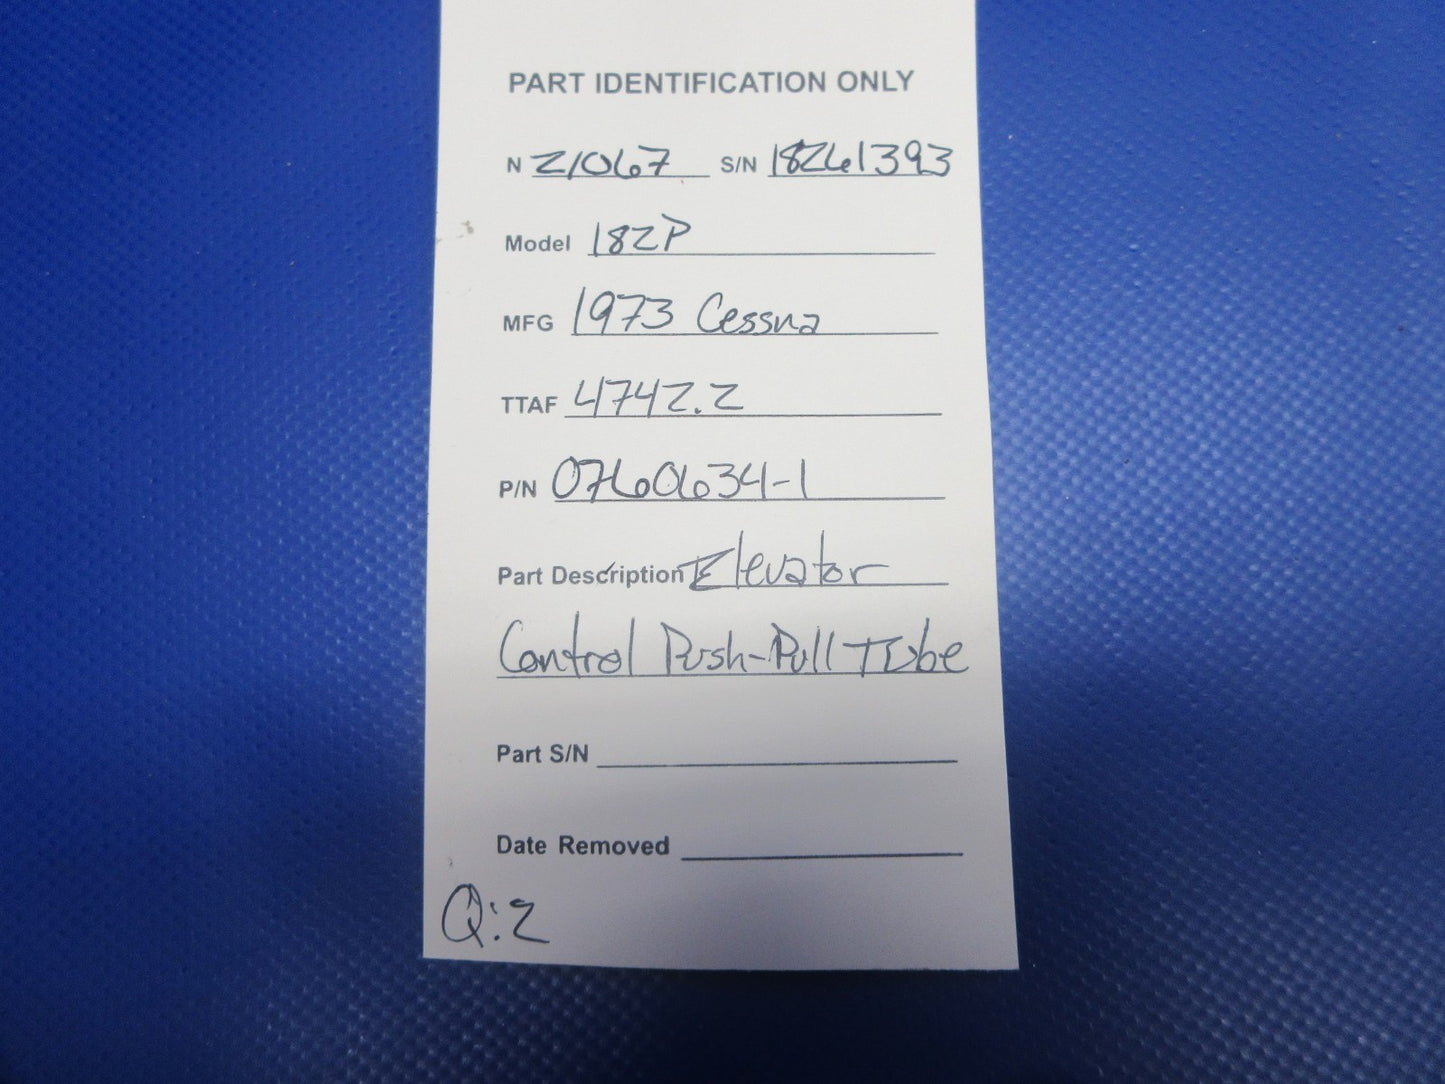 PART IDENTIFICATION ONLY
N 21067 S/N 18261393
Model 182P
MFG 1973 Cessna
TTAF 4742.2
P/N 0760634-1
Part Description Elevator
Control Push-Pull Tube
Part S/N
Date Removed
Q:2